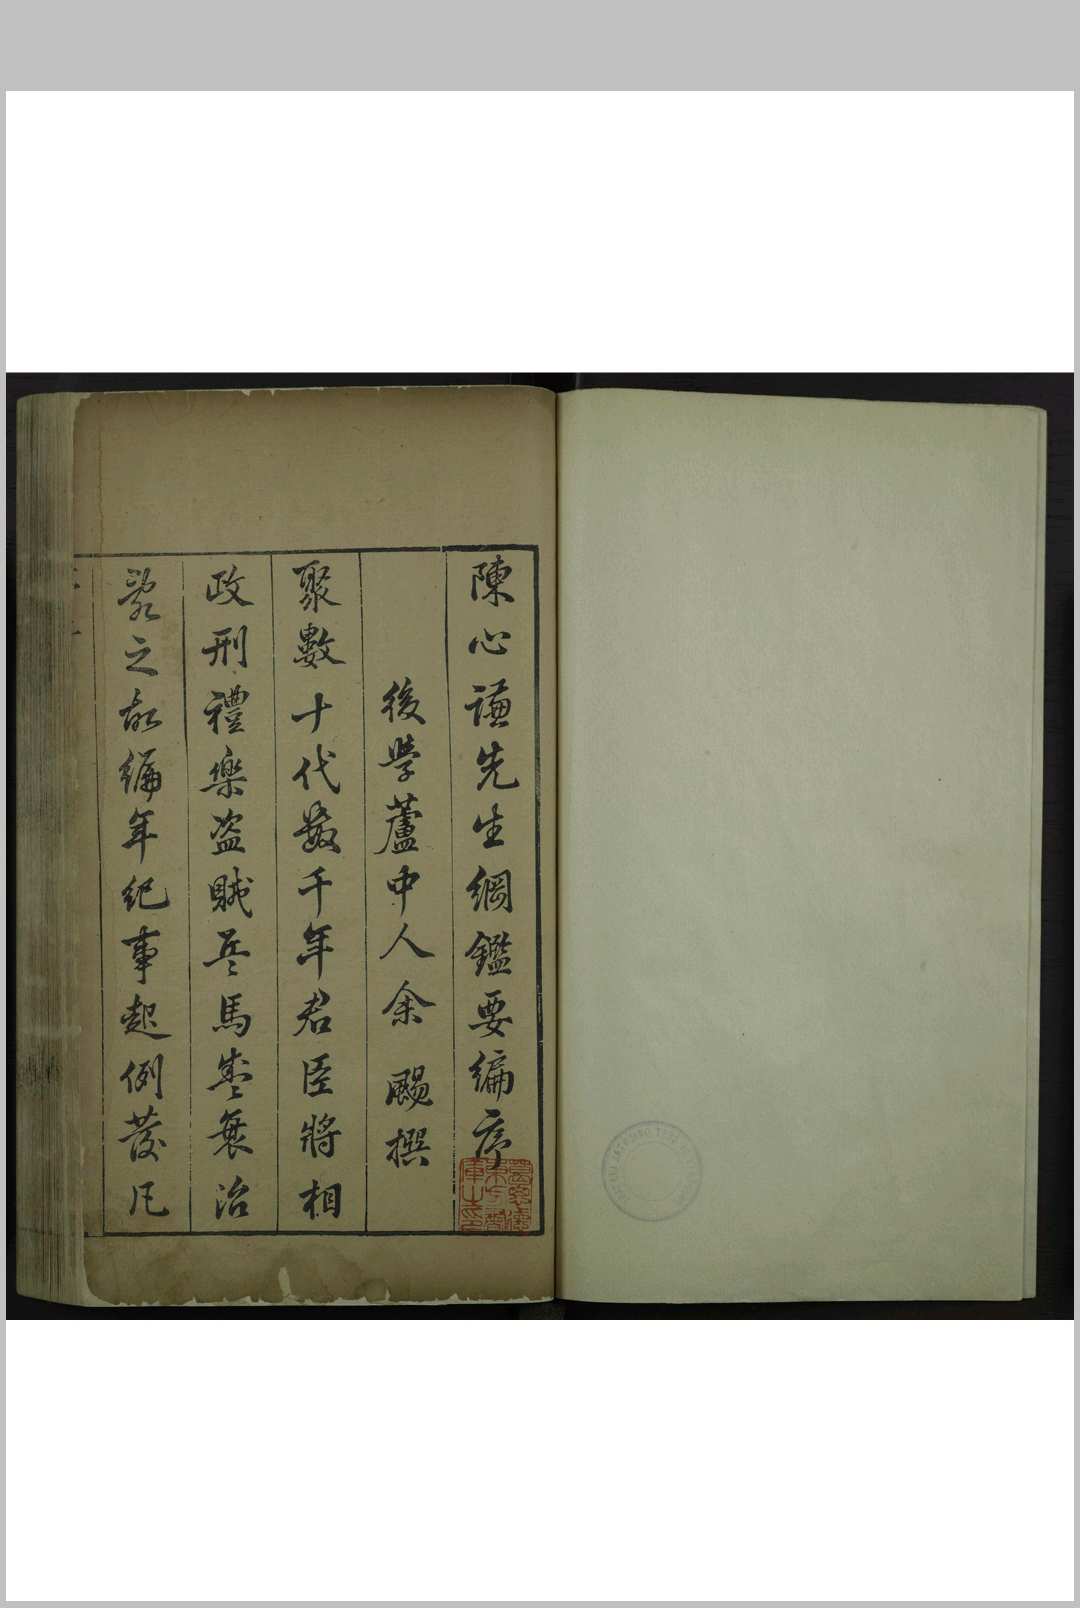 陳心謙先生綱鑑要編序
後學蘆中人余颺撰
聚數十代數千年君臣將相
政刑禮樂盜賊兵馬盛衰治
亂之故編年紀事起例發凡